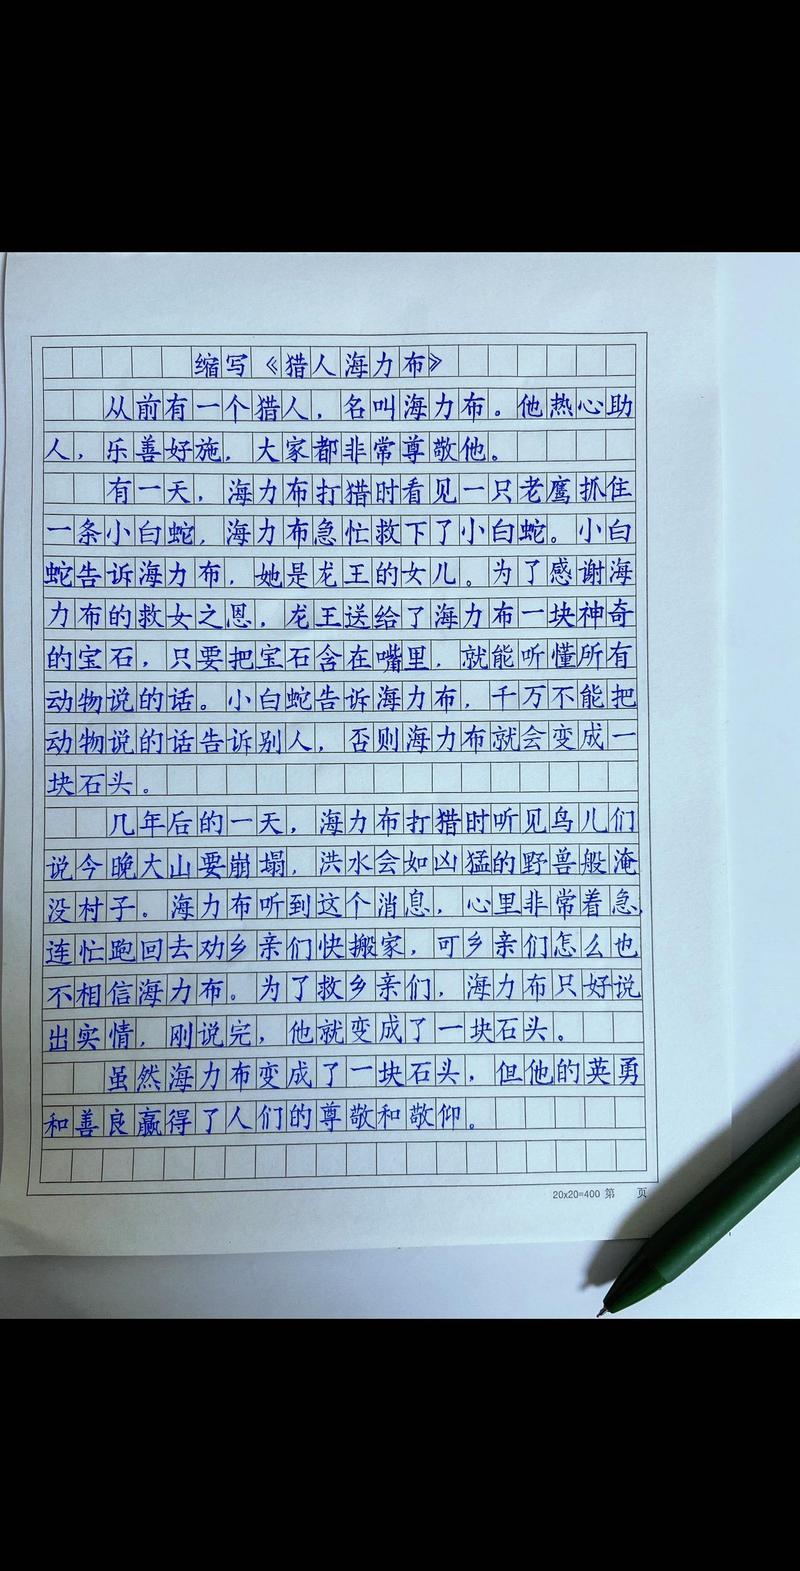 缩写《猎人海力布》
从前有一个猎人，名叫海力布。他热心助
人，乐善好施，大家都非常尊敬他。
有一天，海力布打猎时看见一只老鹰抓住
一条小白蛇，海力布急忙救下了小白蛇。小白
蛇告诉海力布，她是龙王的女儿。为了感谢海
力布的救女之恩，龙王送给了海力布一块神奇
的宝石，只要把宝石含在嘴里，就能听懂所有
动物说的话。小白蛇告诉海力布，千万不能把
动物说的话告诉别人，否则海力布就会变成一
块石头。
几年后的一天，海力布打猎时听见鸟儿们
说今晚大山要崩塌，洪水会如凶猛的野兽般淹
没村子。海力布听到这个消息，心里非常着急，
连忙跑回去劝乡亲们快搬家，可乡亲们怎么也
不相信海力布。为了救乡亲们，海力布只好说
出实情，刚说完，他就变成了一块石头。
虽然海力布变成了一块石头，但他的英勇
和善良赢得了人们的尊敬和敬仰。
20x20=400 第 页